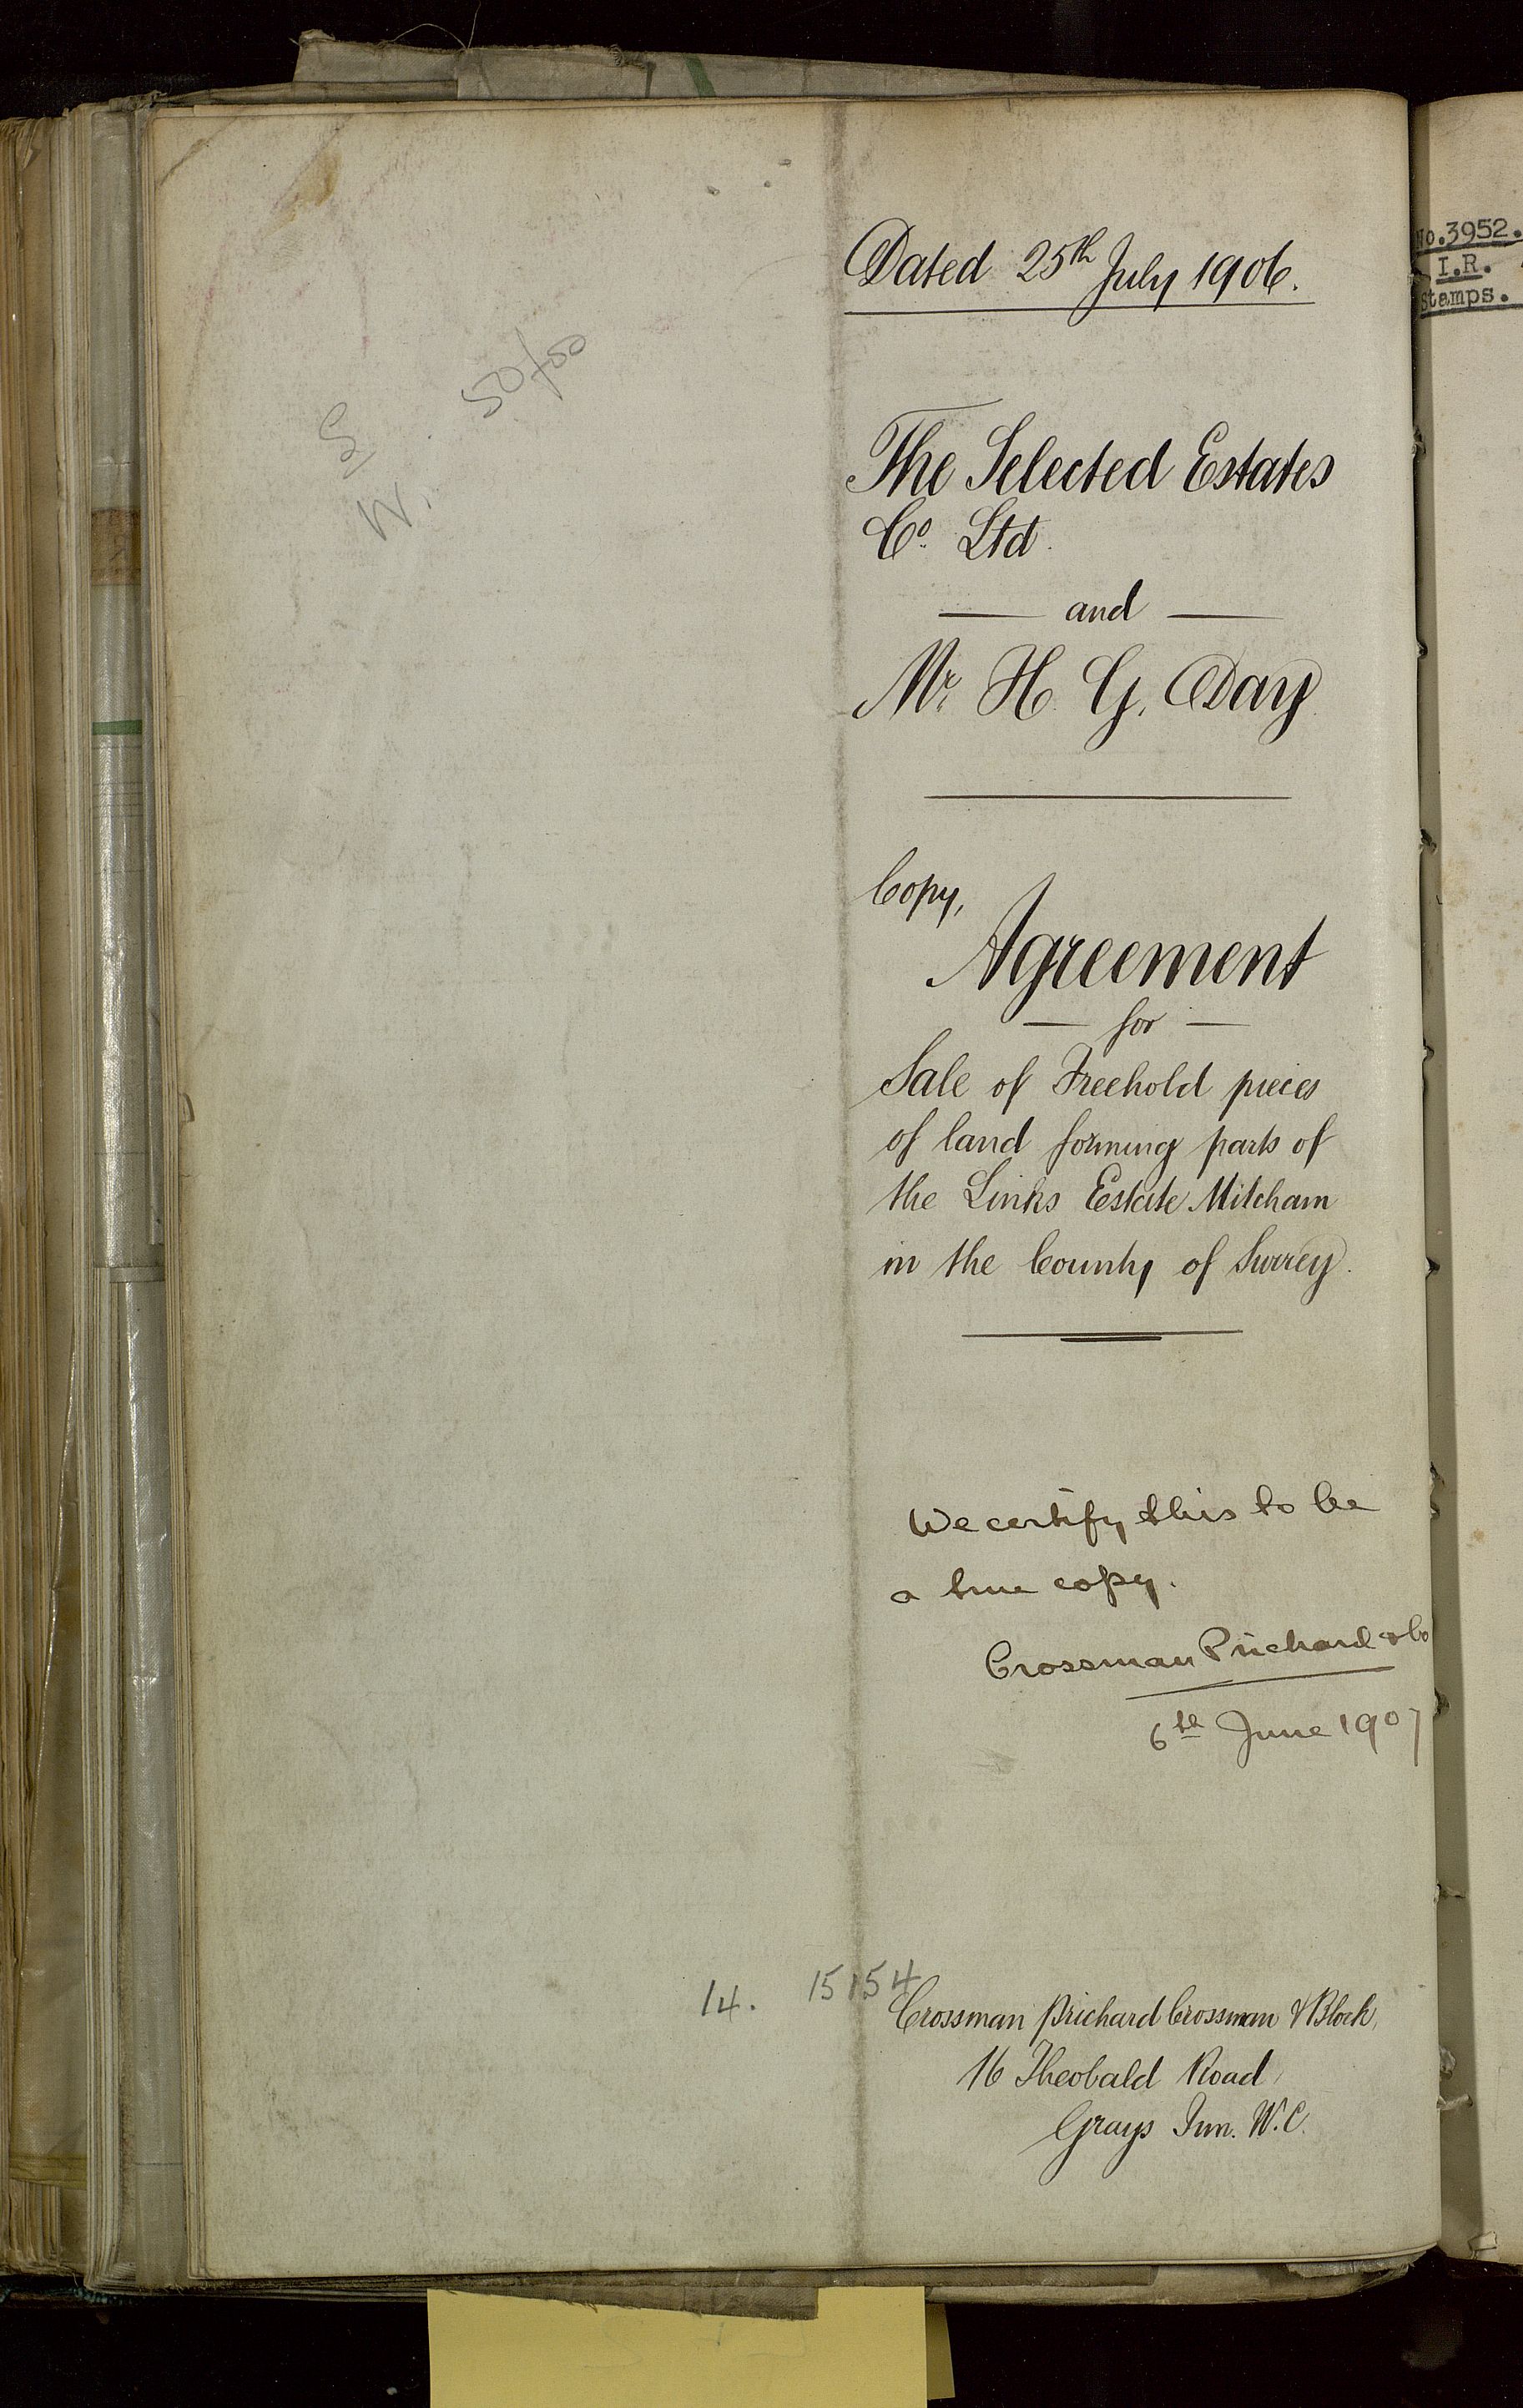 Dated 25th July 1906.
The Selected Estates
Co. Ltd.
and
Mr. H. G. Day
Copy,
Agreement
for
Sale of Freehold pieces
of land forming parts of
the Links Estate Mitcham
in the County of Surrey.
We certify this to be
a true copy.
Crossman Prichard & Co
6th June 1907
14. 15154
Crossman Prichard Crossman & Block,
16 Theobald Road,
Grays Inn. W.C.
No.3952.
I.R.
Stamps.